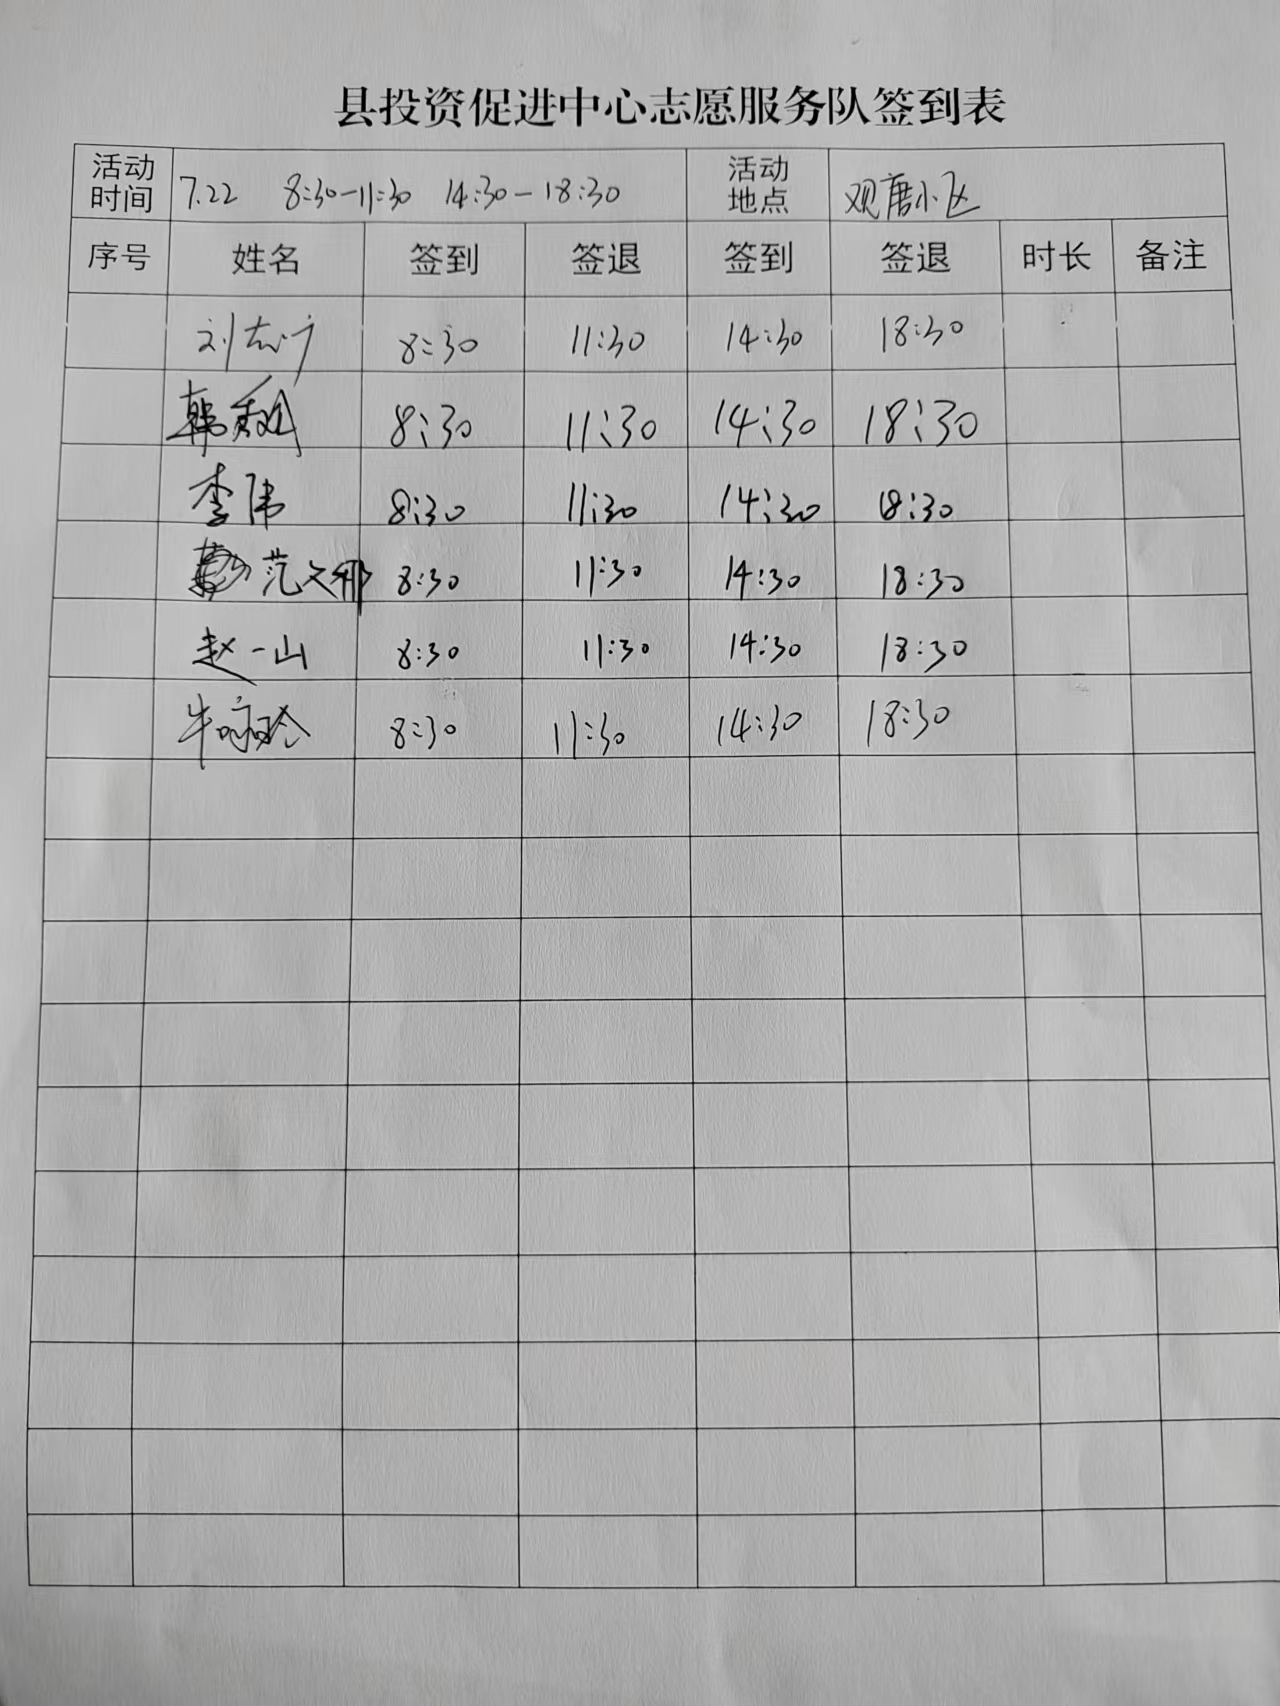 县投资促进中心志愿服务队签到表
活动时间 7.22 8:30-11:30 14:30-18:30 活动地点 观唐小区
序号 姓名 签到 签退 签到 签退 时长 备注
刘志广 8:30 11:30 14:30 18:30
韩 8:30 11:30 14:30 18:30
李伟 8:30 11:30 14:30 18:30
范文娜 8:30 11:30 14:30 18:30
赵一山 8:30 11:30 14:30 18:30
牛咏玲 8:30 11:30 14:30 18:30